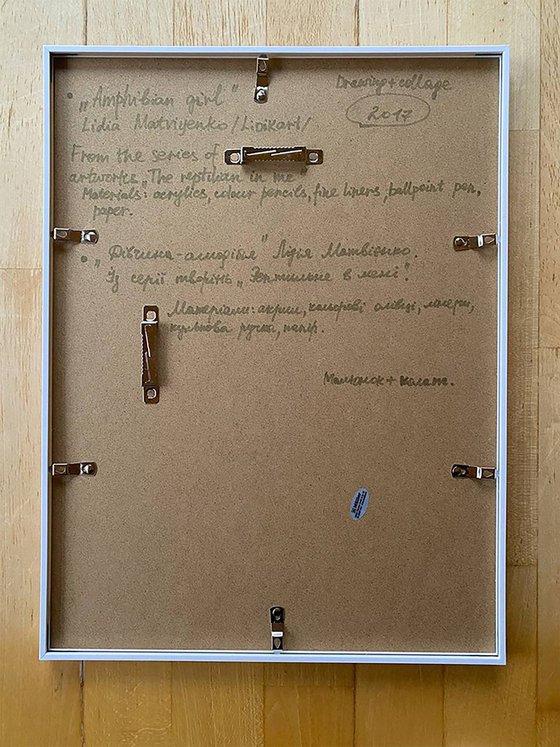 • „Amphibian girl"
Drawing+collage
2017
Lidia Matviyenko /Lidikart/
From the series of
artworks „The reptilian in me"
Materials: acrylics, colour pencils, fine liners, ballpoint pen,
paper.
• „Дівчина-амфібія" Лідія Матвієнко.
Із серії творінь „Рептильне в мені".
Матеріали: акрил, кольорові олівці, лінери,
кулькова ручка, папір.
Малюнок + колаж.